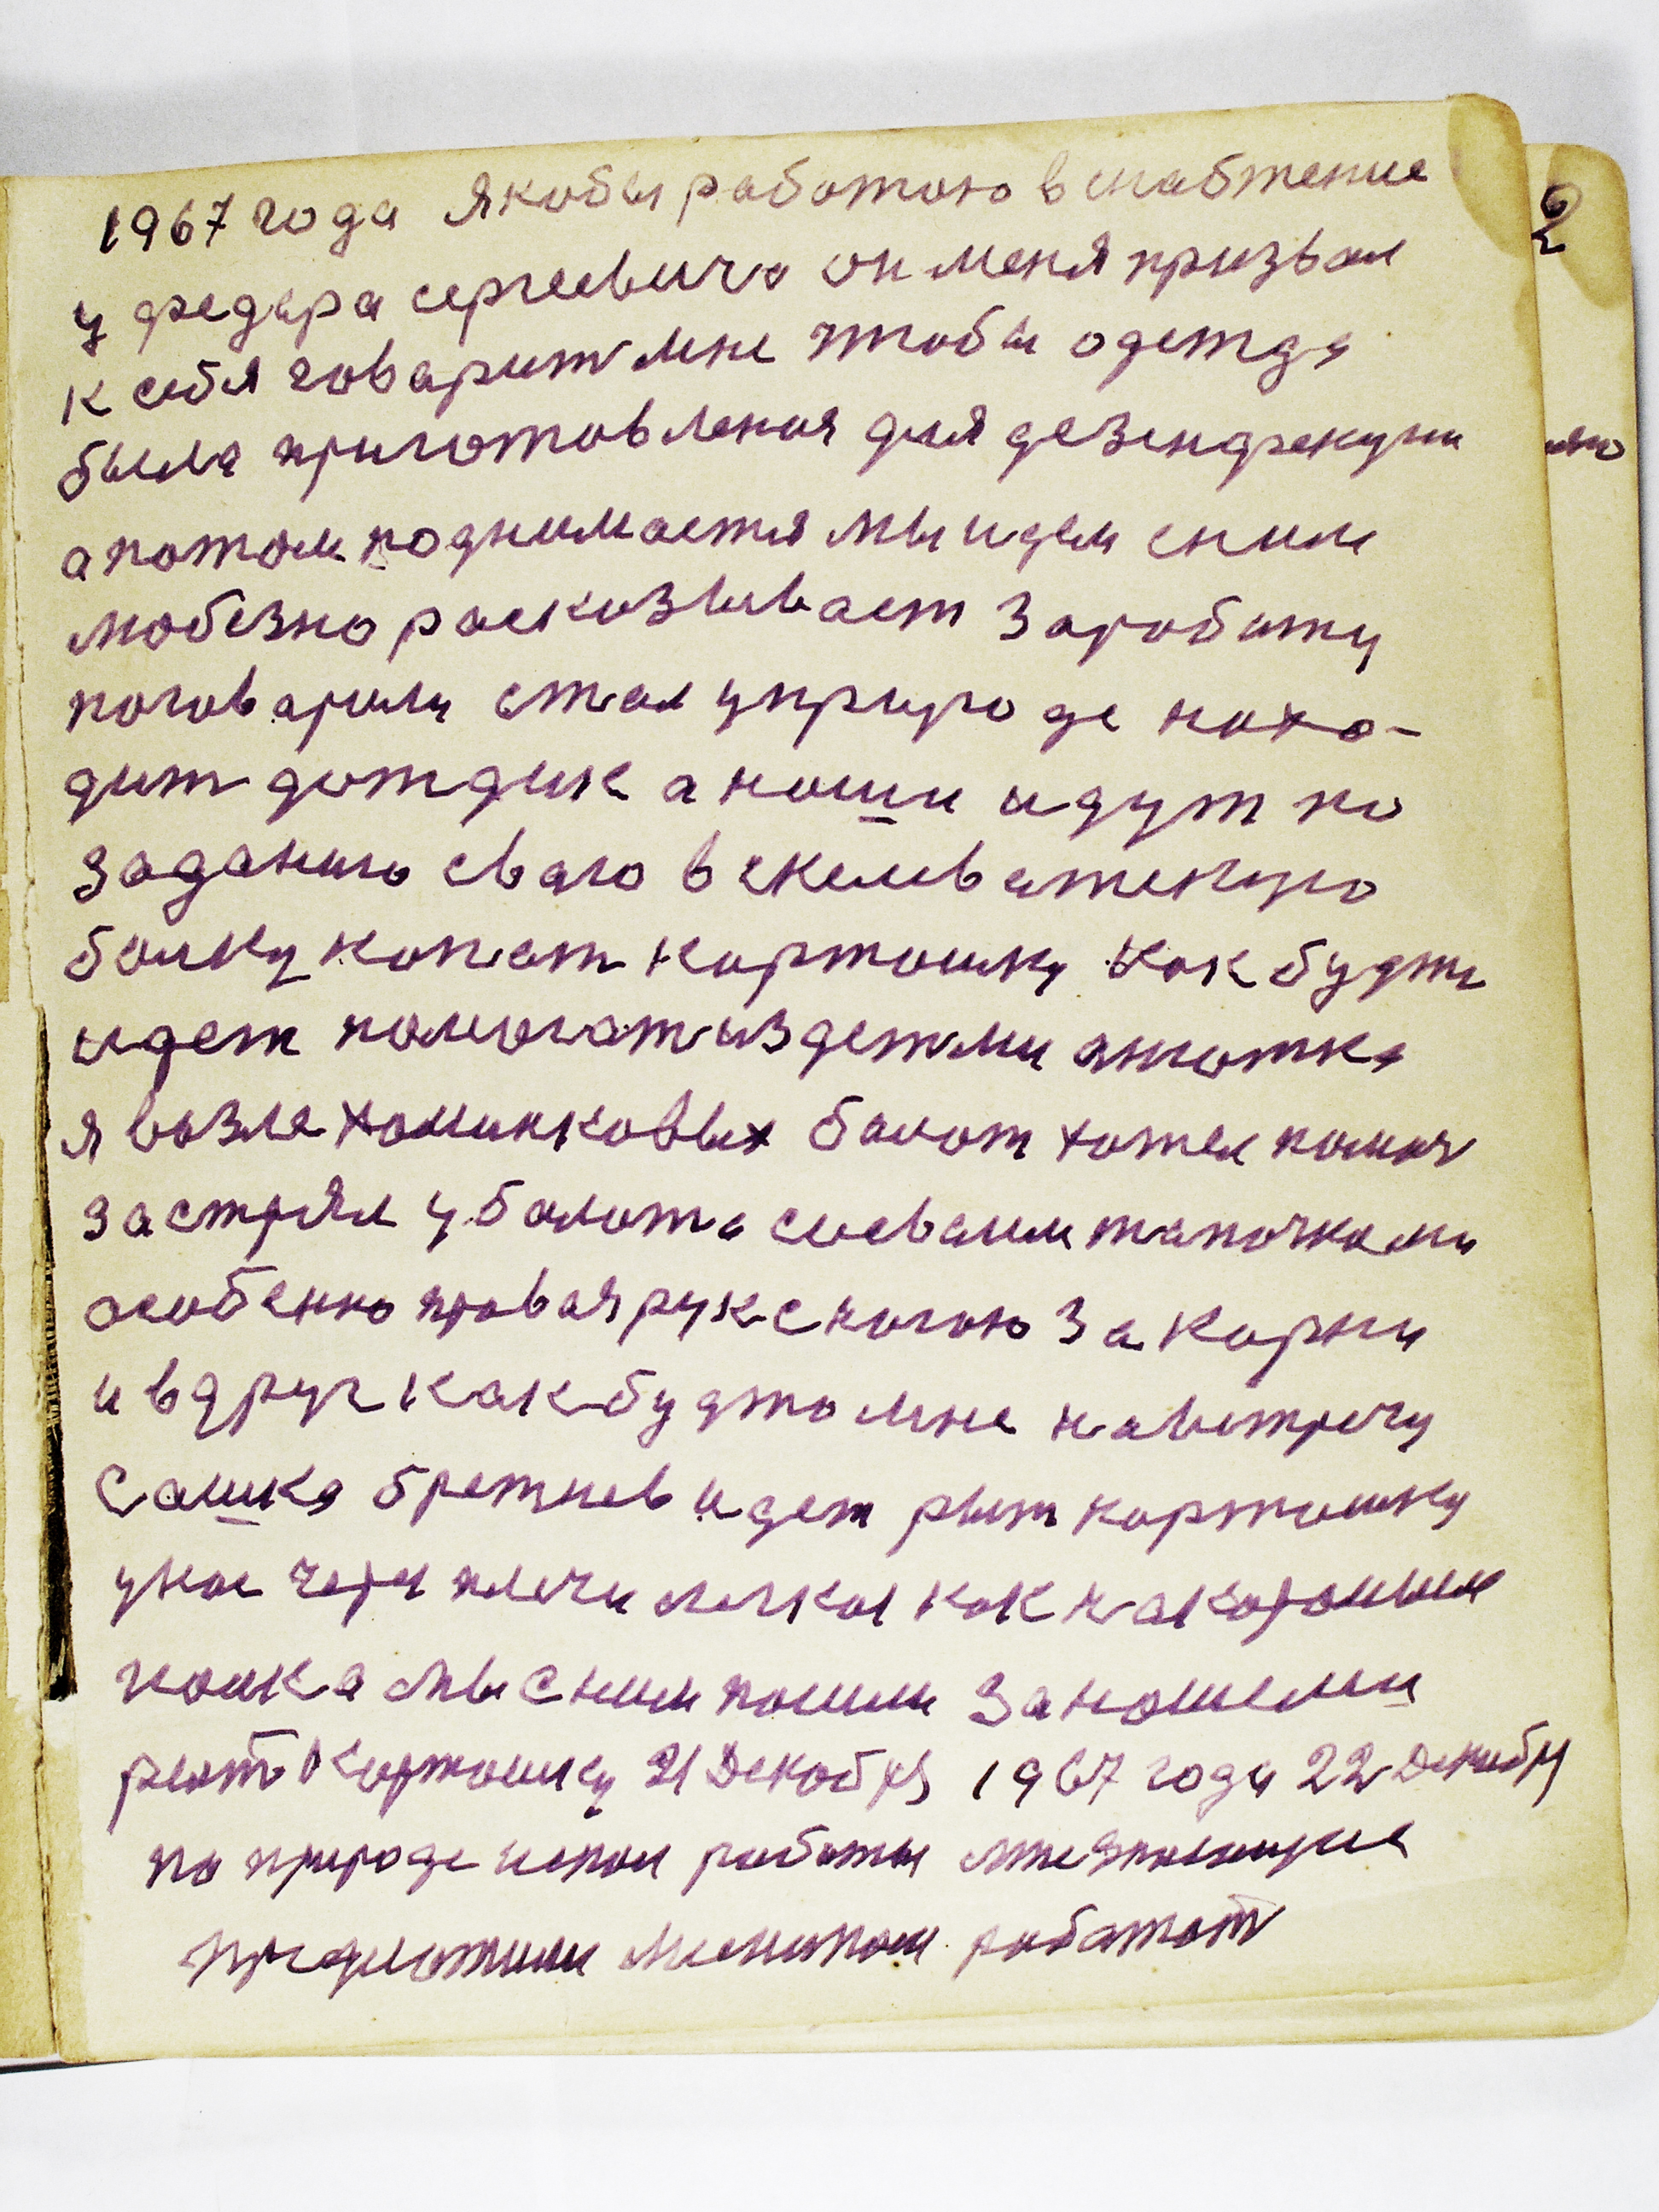 1967 года якобы работою в снабжение
у федара сергеевича он меня призвал
к себя говарит мне чтобы одежда
была приготовленая для дезинфекции
а потом поднимается мы идем сним
любезно расказывает Заработу
поговарили стал уприроде нахо-
дит дождик а наши идут по
заданию сваго в
балку копат картошку как будто
идет помогат из детми анютка
я возле болот хотел помоч
застрял у болота своеми тапочками
особенно правая рука с ногою За карни
и вдруг как будто мне навстречу
Сашка брежнев идет рыт картошку
 плечи как на
 мы с ним пошли За нашеми
рыт Картошку 21 Декабря 1967 года 22 Декабря
по природе работы
предложили работат
2